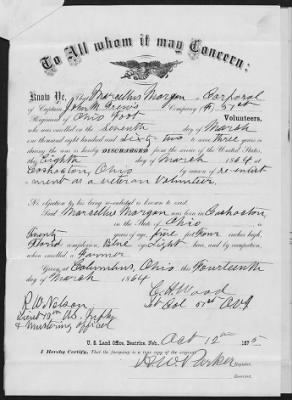 To All whom it may Concern:
Know Ye, That Marcellus Morgan a Corporal
of Captain John M. Company (F,) 51st
Regiment of Ohio Foot Volunteers,
who was enrolled on the Seventh day of March
one thousand eight hundred and Sixty two to serve Three years or
during the war, is hereby DISCHARGED from the service of the United States,
this Eighth day of March, 1864, at
Coshocton, Ohio by reason of re-enlist
ment as a veteran Volunteer.
No objection to his being re-enlisted is known to exist.
Said Marcellus Morgan was born in Coshocton,
in the State of Ohio, is
Twenty years of age, Five feet Four inches high,
complexion, Blue eyes, Light hair, and by occupation,
when enrolled, a Farmer
Given at Columbus, Ohio this Fourteenth
day of March 1864
C. H. Wood
R. W. Nelson Lt Col 51st O.V.I.
Lieut 18th U.S. Infty
& mustering officer
U. S. Land Office, Beatrice, Neb., Oct 12th 1875
I Hereby Certify, That the foregoing is a true copy of the original
Parker
Register.
Receiver.